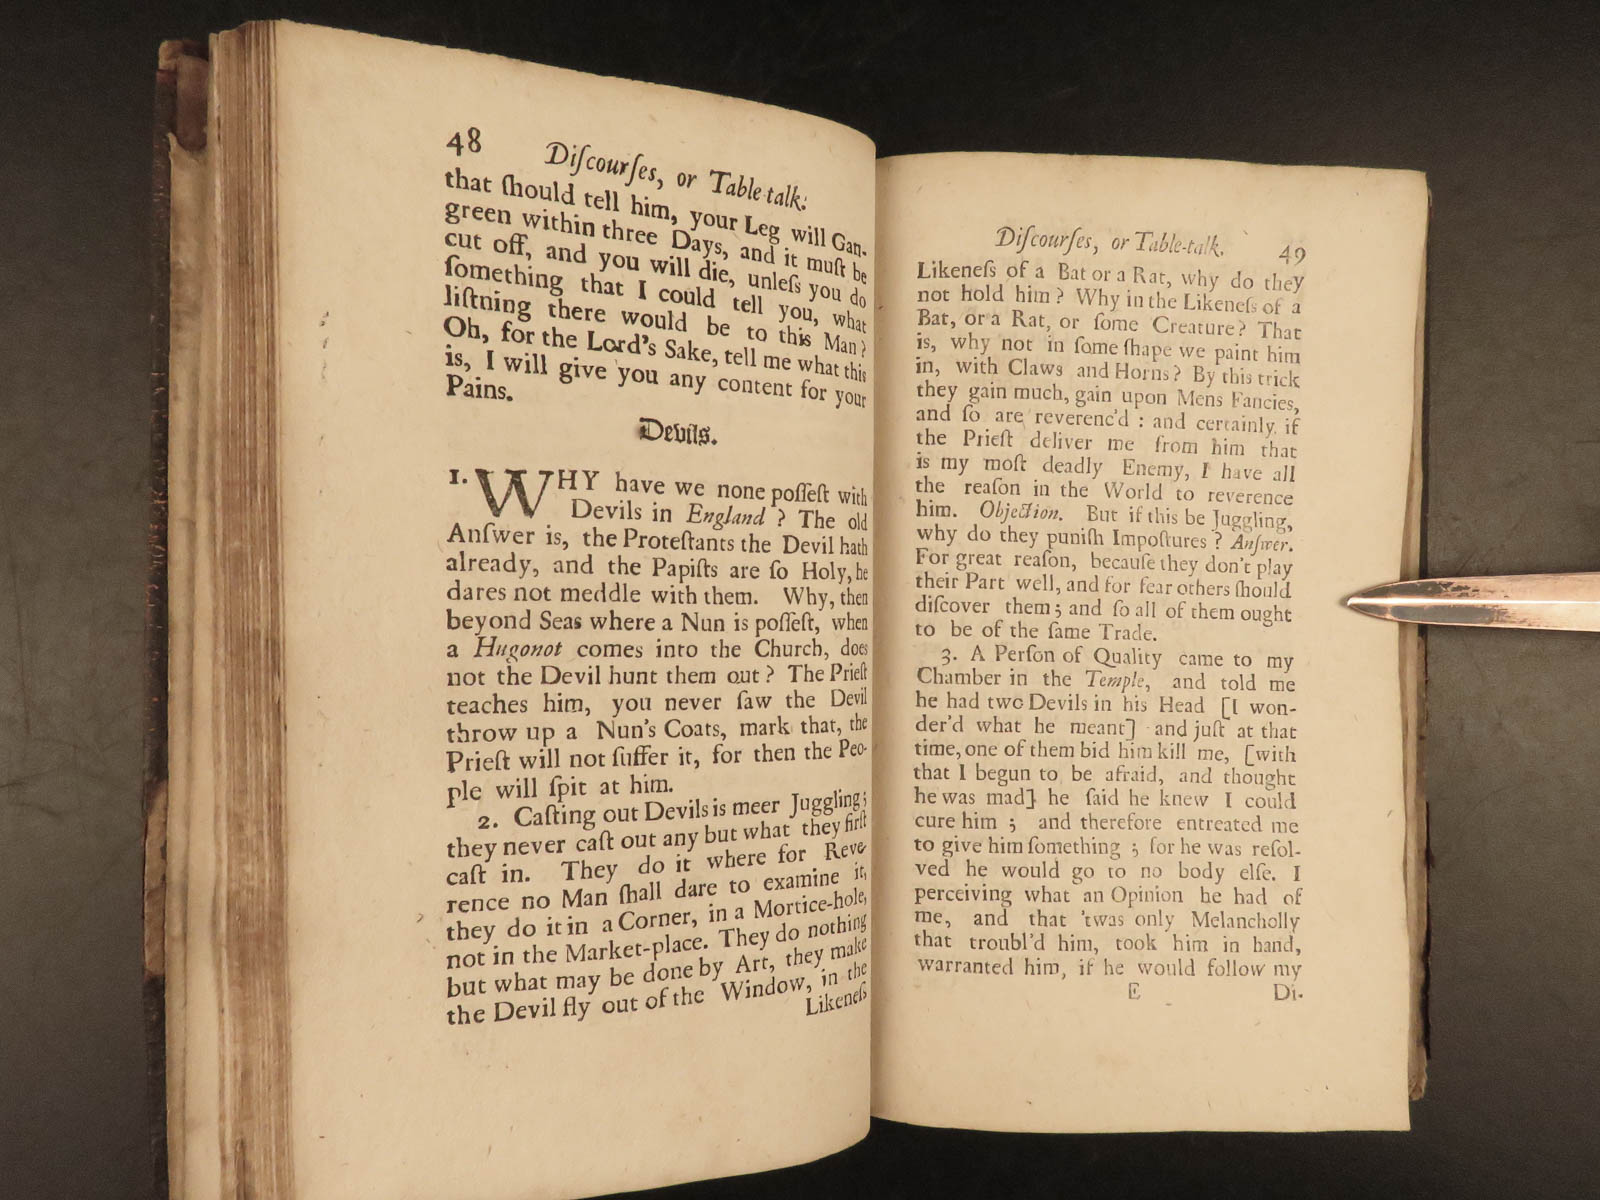 48
Diſcourſes, or Table-talk.
that ſhould tell him, your Leg will Gan-
green within three Days, and it muſt be
cut off, and you will die, unleſs you do
ſomething that I could tell you, what
liſtning there would be to this Man?
Oh, for the Lord's Sake, tell me what this
is, I will give you any content for your
Pains.
Devils.
1. WHY have we none poſſeſt with
Devils in England? The old
Anſwer is, the Proteſtants the Devil hath
already, and the Papiſts are ſo Holy, he
dares not meddle with them. Why, then
beyond Seas where a Nun is poſſeſt, when
a Hugonot comes into the Church, does
not the Devil hunt them out? The Prieſt
teaches him, you never ſaw the Devil
throw up a Nun's Coats, mark that, the
Prieſt will not ſuffer it, for then the Peo-
ple will ſpit at him.
2. Caſting out Devils is meer Juggling;
they never caſt out any but what they firſt
caſt in. They do it where for Reve-
rence no Man ſhall dare to examine it,
they do it in a Corner, in a Mortice-hole,
not in the Market-place. They do nothing
but what may be done by Art, they make
the Devil fly out of the Window, in the
Likeneſs
Diſcourſes, or Table-talk.
49
Likeneſs of a Bat or a Rat, why do they
not hold him? Why in the Likeneſs of a
Bat, or a Rat, or ſome Creature? That
is, why not in ſome ſhape we paint him
in, with Claws and Horns? By this trick
they gain much, gain upon Mens Fancies,
and ſo are reverenc'd: and certainly, if
the Prieſt deliver me from him that
is my moſt deadly Enemy, I have all
the reaſon in the World to reverence
him. Objection. But if this be Juggling,
why do they puniſh Impoſtures? Anſwer.
For great reaſon, becauſe they don't play
their Part well, and for fear others ſhould
diſcover them; and ſo all of them ought
to be of the ſame Trade.
3. A Perſon of Quality came to my
Chamber in the Temple, and told me
he had two Devils in his Head [I won-
der'd what he meant] and juſt at that
time, one of them bid him kill me, [with
that I begun to be afraid, and thought
he was mad] he ſaid he knew I could
cure him; and therefore entreated me
to give him ſomething; for he was reſol-
ved he would go to no body elſe. I
perceiving what an Opinion he had of
me, and that 'twas only Melancholly
that troubl'd him, took him in hand,
warranted him, if he would follow my
E
Di-